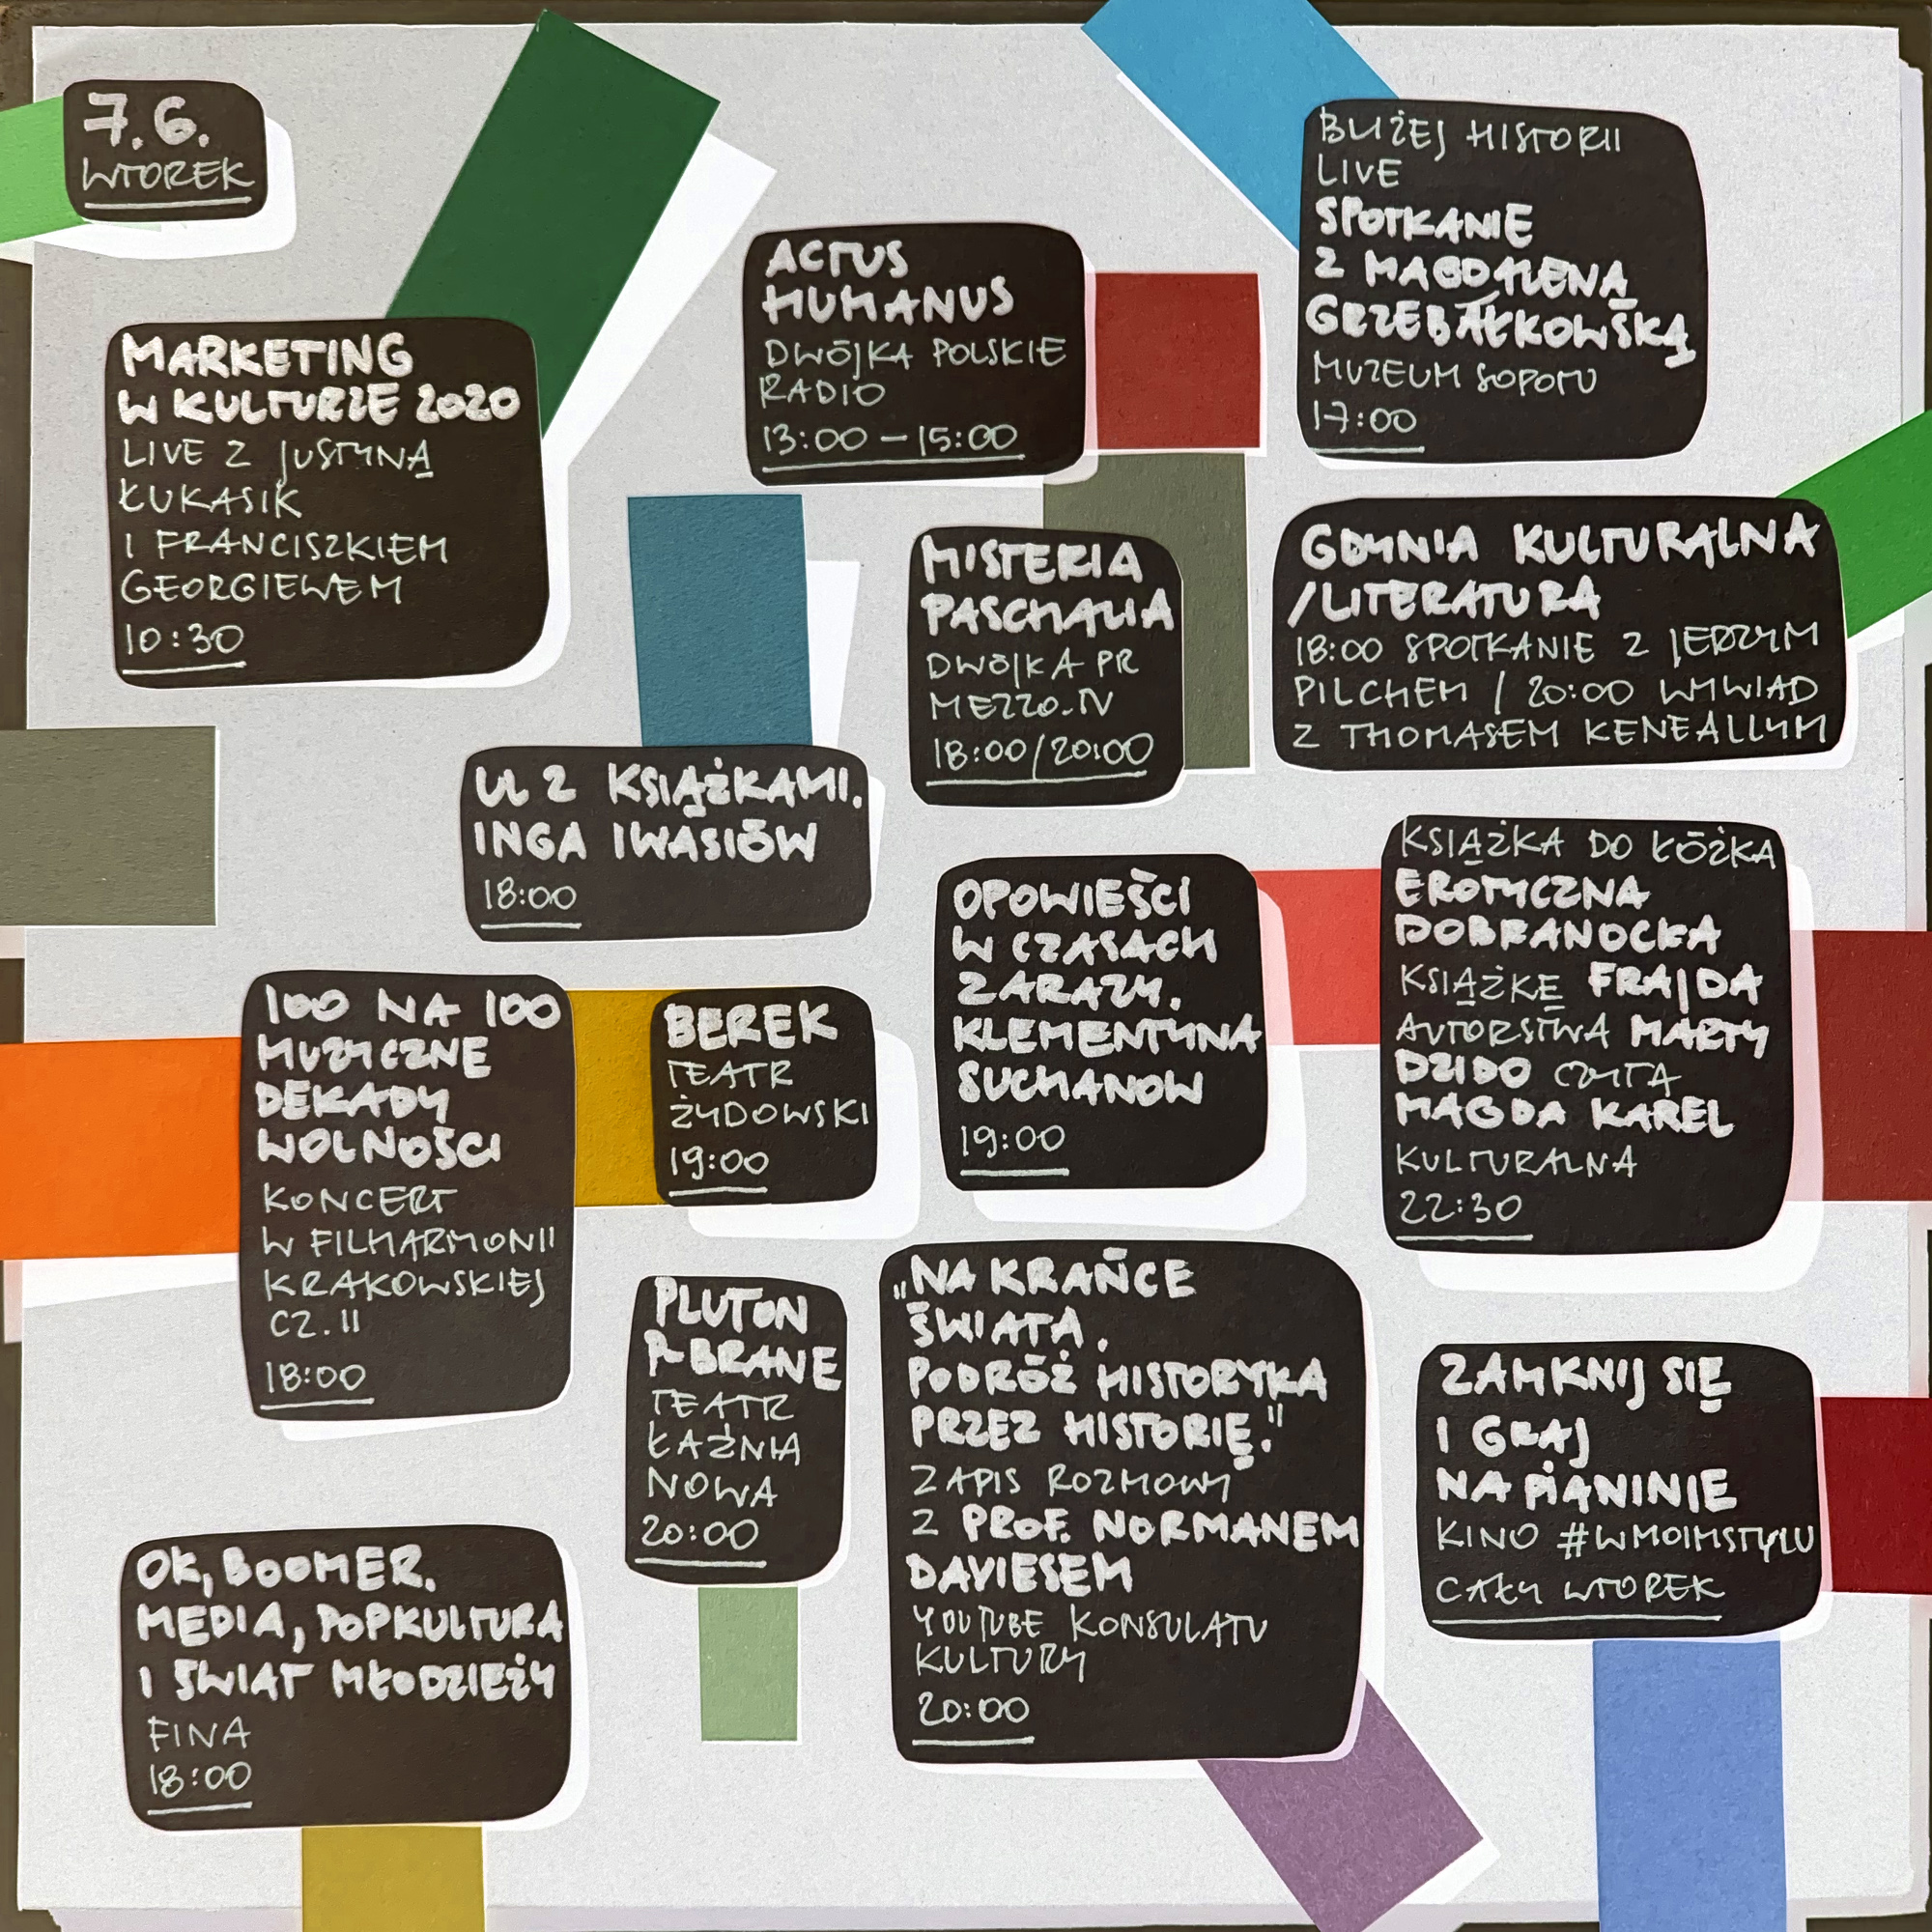 7.6.
WTOREK
MARKETING
W KULTURZE 2020
LIVE Z JUSTYNĄ
ŁUKASIK
I FRANCISZKIEM
GEORGIEWEM
10:30
ACTUS
HUMANUS
DWÓJKA POLSKIE
RADIO
13:00 – 15:00
BLIŻEJ HISTORII
LIVE
SPOTKANIE
Z MAGDALENĄ
GRZEBAŁKOWSKĄ
MUZEUM SOPOTU
17:00
MISTERIA
PASCHALIA
DWÓJKA PR
MEZZO.TV
18:00/20:00
GDYNIA KULTURALNA
/LITERATURA
18:00 SPOTKANIE Z JERZYM
PILCHEM / 20:00 WYWIAD
Z THOMASEM KENEALLYM
UL Z KSIĄŻKAMI.
INGA IWASIÓW
18:00
OPOWIEŚCI
W CZASACH
ZARAZY.
KLEMENTYNA
SUCHANOW
19:00
KSIĄŻKA DO ŁÓŻKA
EROTYCZNA
DOBRANOCKA
KSIĄŻKĘ FRAJDA
AUTORSTWA MARTY
DZIDO CZYTA
MAGDA KAREL
KULTURALNA
22:30
100 NA 100
MUZYCZNE
DEKADY
WOLNOŚCI
KONCERT
W FILHARMONII
KRAKOWSKIEJ
CZ. II
18:00
BEREK
TEATR
ŻYDOWSKI
19:00
PLUTON
P-BRANE
TEATR
ŁAŹNIA
NOWA
20:00
„NA KRAŃCE
ŚWIATA.
PODRÓŻ HISTORYKA
PRZEZ HISTORIĘ."
ZAPIS ROZMOWY
Z PROF. NORMANEM
DAVIESEM
YOUTUBE KONSULATU
KULTURY
20:00
ZAMKNIJ SIĘ
I GRAJ
NA PIANINIE
KINO #WMOIMSTYLU
CAŁY WTOREK
OK, BOOMER.
MEDIA, POPKULTURA
I ŚWIAT MŁODZIEŻY
FINA
18:00